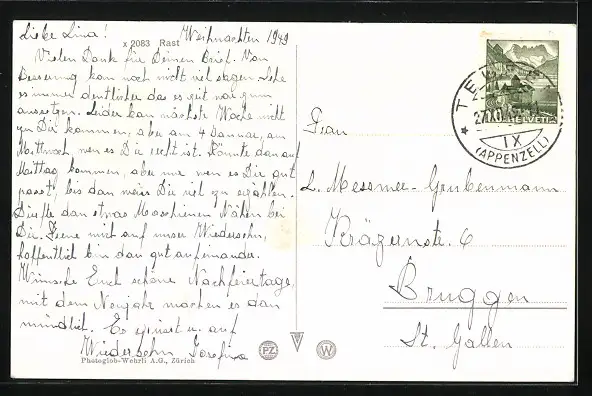 Liebe Lina! Weihnachten 1949
x 2083 Rast
Vielen Dank für Deinen Brief. Von
Besserung kan noch nicht viel sagen. Sehe
es immer deutlicher das es Zeit war zum
aussetzen. Leider kan nächste Woche nicht
zu Dir kommen, aber am 4 Januar, am
Mittwoch, wen es Dir recht ist. Könnte dan auf
Mittag kommen, aber nur wen es Dir gut
passt, bis dan weiss Dir viel zu erzählen.
Dürfte dan etwas Maschienen Nähen bei
Dir. Freue mich auf unser Wiedersehn,
hoffentlich bin dan gut aufeinander.
Wünsche Euch schöne Nachfeiertage,
mit dem Neujahr machen es dan
mündlich. Es grüsst u. auf
Wiedersehn Josefina
Photoglob-Wehrli A.G., Zürich
PZ
W
HELVETIA
IX
(APPENZELL)
Frau
L. Messmer-Grubenmann
Kräzernstr. 6
Bruggen
St. Gallen